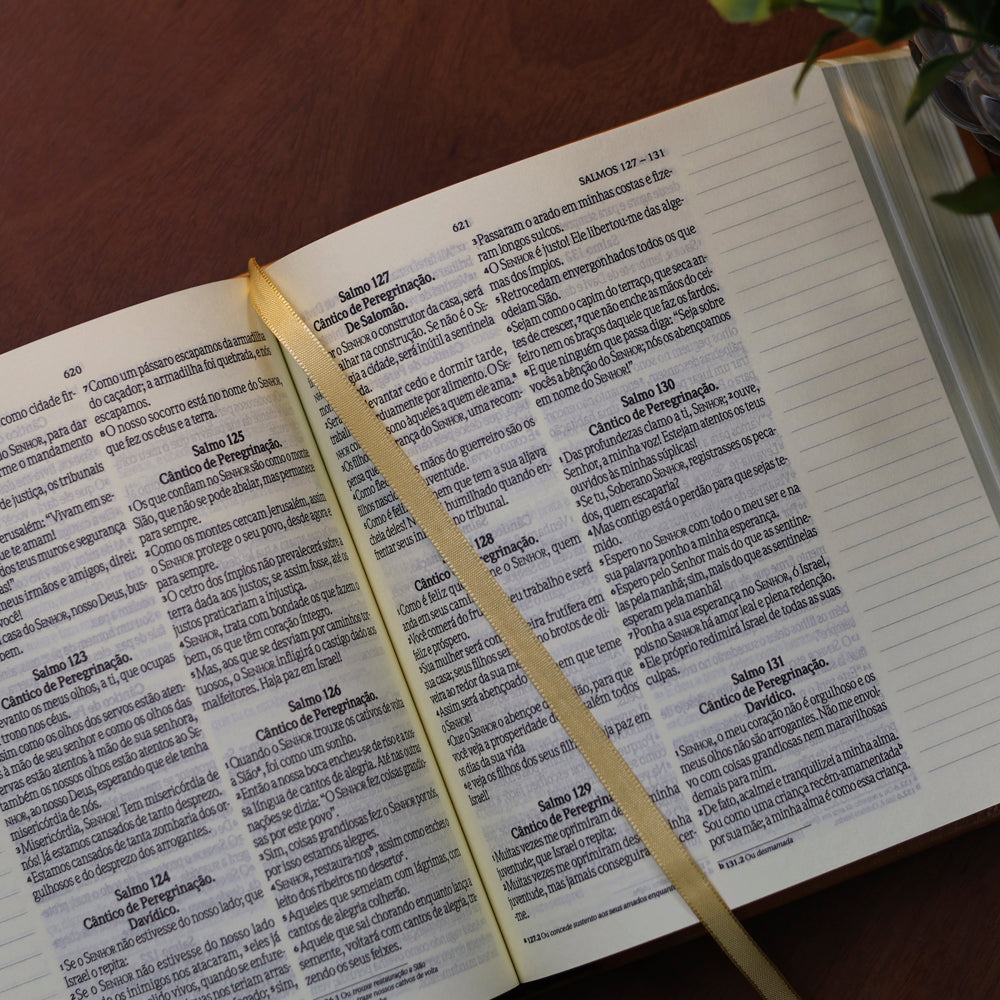 620
como cidade fir-
SENHOR, para dar
me o mandamento
de justiça, os tribunais
erusalém: "Vivam em se-
que te amam!
dos teus muros e segurança
as!"
meus irmãos e amigos, direi:
você!
casa do SENHOR, nosso Deus, bus-
bem.
Salmo 123
Cântico de Peregrinação.
evanto os meus olhos, a ti, que ocupas
trono nos céus.
sim como os olhos dos servos estão aten-
s à mão de seu senhor e como os olhos das
ervas estão atentos à mão de sua senhora,
também os nossos olhos estão atentos ao SE-
NHOR, ao nosso Deus, esperando que ele tenha
misericórdia de nós.
Misericórdia, SENHOR! Tem misericórdia de
nós! Já estamos cansados de tanto desprezo.
Estamos cansados de tanta zombaria dos or-
gulhosos e do desprezo dos arrogantes.
Salmo 124
Cântico de Peregrinação.
Davídico.
¹Se o SENHOR não estivesse do nosso lado; que
Israel o repita:
²Se o SENHOR não estivesse do nosso lado
do os inimigos nos atacaram, ³eles já
lido vivos, quando se enfure-
⁷Como um pássaro escapamos da armadilha
do caçador; a armadilha foi quebrada, e nós
escapamos.
⁸O nosso socorro está no nome do SENHOR,
que fez os céus e a terra.
Salmo 125
Cântico de Peregrinação.
¹Os que confiam no SENHOR são como o monte
Sião, que não se pode abalar, mas permanece
para sempre.
²Como os montes cercam Jerusalém, assim
o SENHOR protege o seu povo, desde agora e
para sempre.
³O cetro dos ímpios não prevalecerá sobre a
terra dada aos justos, se assim fosse, até os
justos praticariam a injustiça.
⁴SENHOR, trata com bondade os que fazem o
bem, os que têm coração íntegro.
⁵Mas, aos que se desviam por caminhos tor-
tuosos, o SENHOR infligirá o castigo dado aos
malfeitores. Haja paz em Israel!
Salmo 126
Cântico de Peregrinação.
¹Quando o SENHOR trouxe os cativos de volta
a Sião, foi como um sonho.
²Então a nossa boca encheu-se de riso e a nos-
sa língua de cantos de alegria. Até nas outras
nações se dizia: "O SENHOR fez coisas grandio-
sas por este povo".
³Sim, coisas grandiosas fez o SENHOR por nós,
por isso estamos alegres.
⁴SENHOR, restaura-nos, assim como enches o
leito dos ribeiros no deserto.
⁵Aqueles que semeiam com lágrimas, com
cantos de alegria colherão.
⁶Aquele que sai chorando enquanto lança a
semente, voltará com cantos de alegria, tra-
zendo os seus feixes.
Ou trouxe restauração a Sião
traze nossos cativos de volta
621
SALMOS 127 – 131
Salmo 127
Cântico de Peregrinação.
De Salomão.
o SENHOR o construtor da casa, será
alhar na construção. Se não é o SE-
gia a cidade, será inútil a sentinela
da.
levantar cedo e dormir tarde,
duamente por alimento. O SE-
sono àqueles a quem ele ama.ª
ança do SENHOR, uma recom-
mãos do guerreiro são os
ventude.
em que tem a sua aljava
umilhado quando en-
no tribunal.
128
Cântico grinação.
¹Como é feliz que o SENHOR, quem
anda em seus cam
²Você comerá do fru u trabalho e será
feliz e próspero.
³Sua mulher será com eira frutífera em
sua casa; seus filhos ser o brotos de oli-
veira ao redor da sua me
⁴Assim será abençoado em que teme
SENHOR!
⁵Que o SENHOR o abençoe ão, para que
você veja a prosperidade da salém todos
os dias da sua vida
⁶e veja os filhos dos seus filh a paz em
Israel!
Salmo 129
Cântico de Peregrin
¹Muitas vezes me oprimiram de minha
juventude; que Israel o repita:
²Muitas vezes me oprimiram des minha
juventude, mas jamais conseguira cer-
-me.
ª 127.2 Ou concede sustento aos seus amados enquan
³Passaram o arado em minhas costas e fize-
ram longos sulcos.
⁴O SENHOR é justo! Ele libertou-me das alge-
mas dos ímpios.
⁵Retrocedam envergonhados todos os que
odeiam Sião.
⁶Sejam como o capim do terraço, que seca an-
tes de crescer, ⁷que não enche as mãos do cei-
feiro nem os braços daquele que faz os fardos.
⁸E que ninguém que passa diga: "Seja sobre
vocês a bênção do SENHOR; nós os abençoamos
em nome do SENHOR!"
Salmo 130
Cântico de Peregrinação.
¹Das profundezas clamo a ti, SENHOR; ²ouve,
Senhor, a minha voz! Estejam atentos os teus
ouvidos às minhas súplicas!
³Se tu, Soberano SENHOR, registrasses os peca-
dos, quem escaparia?
⁴Mas contigo está o perdão para que sejas te-
mido.
⁵Espero no SENHOR com todo o meu ser e na
sua palavra ponho a minha esperança.
⁶Espero pelo Senhor mais do que as sentine-
las pela manhã; sim, mais do que as sentinelas
esperam pela manhã!
⁷Ponha a sua esperança no SENHOR, ó Israel,
pois no SENHOR há amor leal e plena redenção.
⁸Ele próprio redimirá Israel de todas as suas
culpas.
Salmo 131
Cântico de Peregrinação.
Davídico.
¹SENHOR, o meu coração não é orgulhoso e os
meus olhos não são arrogantes. Não me envol-
vo com coisas grandiosas nem maravilhosas
demais para mim.
²De fato, acalmei e tranquilizei a minha alma.
Sou como uma criança recém-amamentadaᵇ
por sua mãe; a minha alma é como essa criança.
ᵇ 131.2 Ou desmamada